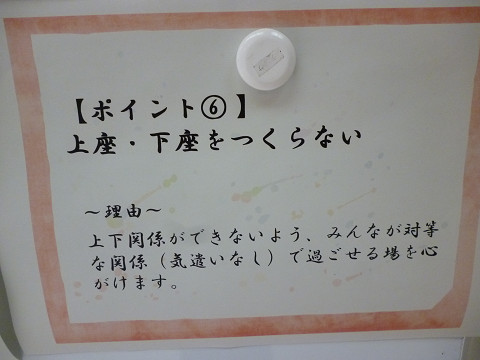 【ポイント⑥】
上座・下座をつくらない
～理由～
上下関係ができないよう、みんなが対等
な関係（気遣いなし）で過ごせる場を心
がけます。